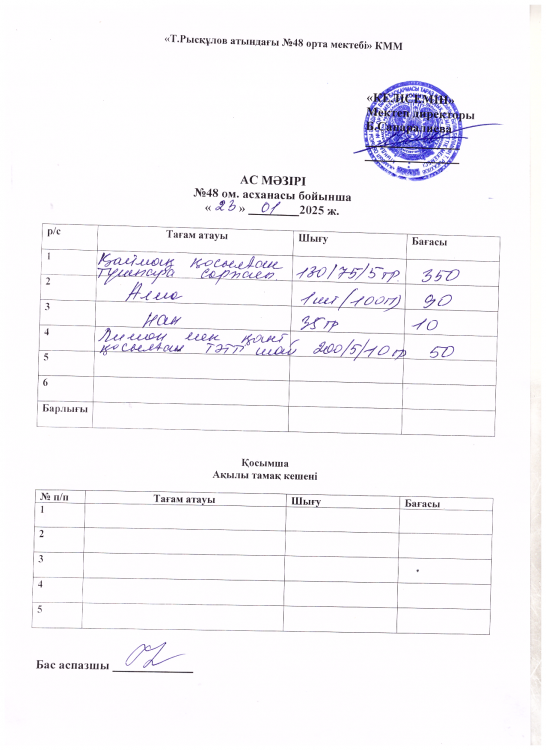 «Т.Рысқұлов атындағы №48 орта мектебі» КММ
«КЕЛІСЕМІН»
Мектеп директоры
АС МӘЗІРІ
№48 ом. асханасы бойынша
« 23 » 01 2025 ж.
р/с Тағам атауы Шығу Бағасы
1 Қаймақ қосылған
тушпара сорпасы 130/75/5 гр. 350
2 Алма 1 шт (100гр) 90
3 Нан 35 гр 10
4 Лимон мен қант
қосылған тәтті шай 200/5/10 гр 50
5
6
Барлығы
Қосымша
Ақылы тамақ кешені
№ п/п Тағам атауы Шығу Бағасы
1
2
3
4
5
Бас аспазшы